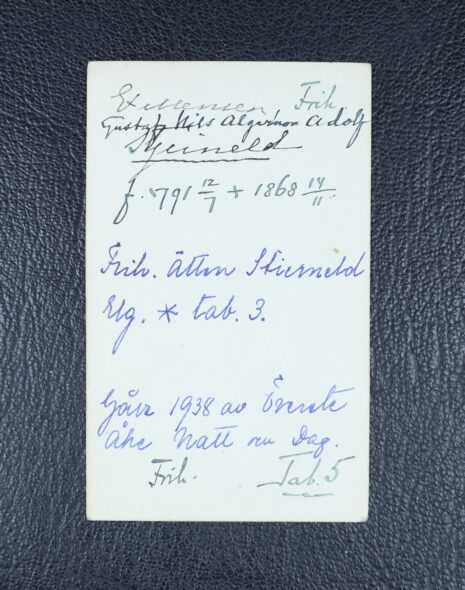 Excellensen Frih.
Gustaf Nils Algernon Adolf
Stjerneld
f. 1791 12/7 + 1868 14/11.
Frih. Ätten Stierneld
Elg. * tab. 3.
Gåva 1938 av Överste
Åke Natt och Dag.
Frih. Tab. 5